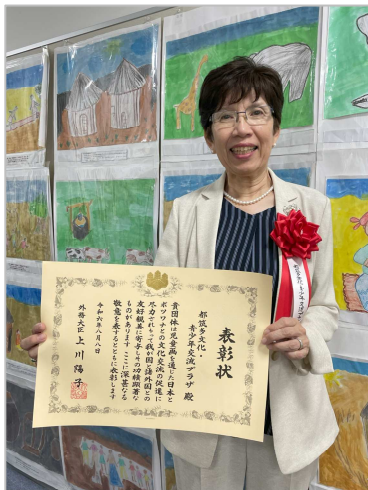 表彰状
都筑多文化・
青少年交流プラザ 殿
貴団体は児童画を通じた日本と
ボツワナとの文化交流の促進に
尽力されもって我が国と諸外国との
友好親善に寄与しその功績顕著な
ものがありますここに深甚なる
敬意を表するとともに表彰します
令和六年八月八日
外務大臣 上川陽子